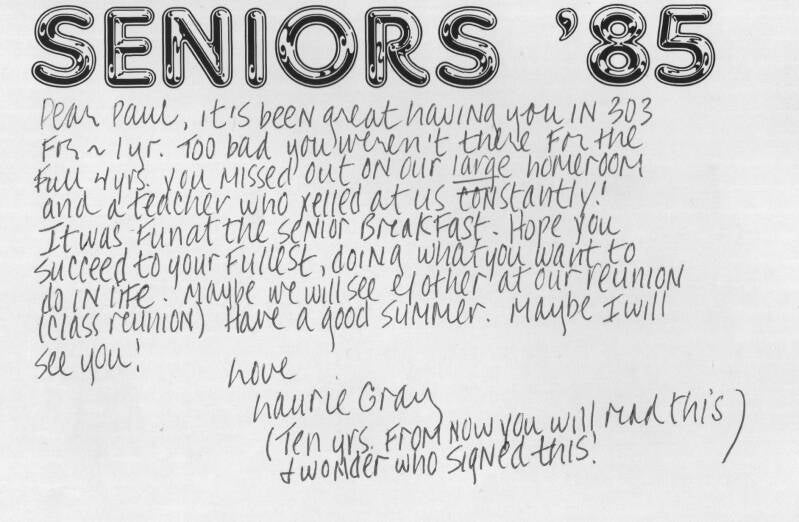 SENIORS '85
Dear Paul, it's been great having you in 303
for ~ 1 yr. Too bad you weren't there for the
full 4 yrs. you missed out on our large homeroom
and a teacher who yelled at us constantly!
It was fun at the senior Breakfast. Hope you
succeed to your fullest, doing what you want to
do in life. Maybe we will see e/other at our reunion
(class reunion) Have a good summer. Maybe I will
see you!
Love
Laurie Gray
(Ten yrs. from now you will read this
& wonder who signed this!)